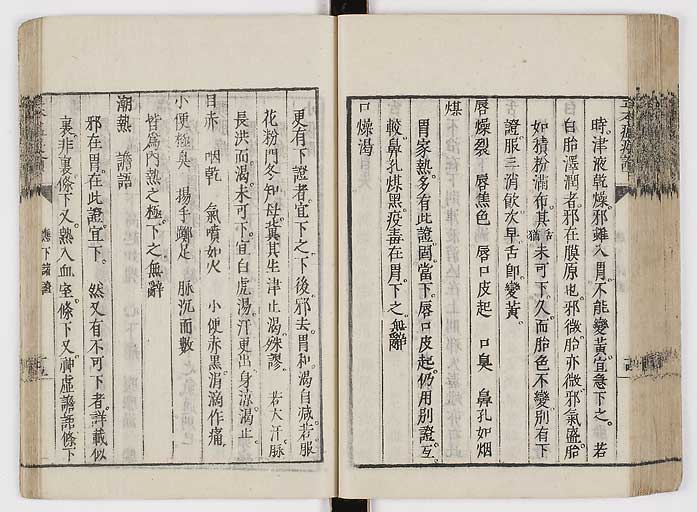 時津液乾燥邪雖入胃不能變黃宜急下之 若
白胎潤澤者邪在膜原也邪微胎亦微邪氣盛胎
如積粉滿布其舌猶未可下久而胎色不變別有下
證服三消飲次早舌即變黃
唇燥裂 唇焦色 唇口皮起 口臭 鼻孔如烟
煤
胃家熱多有此證固當下唇口皮起仍用別證互
較鼻孔煤黑疫毒在胃下之無辭
口燥渴
更有下證者宜下之下後邪去胃和渴自減若服
花粉門冬知母冀其生津止渴殊謬 若大汗脉
長洪而渴未可下宜白虎湯汗更出身涼渴止
目赤 咽乾 氣噴如火 小便赤黑涓滴作痛
小便極臭 揚手躑足 脉沉而數
皆為內熱之極下之無辭
潮熱 譫語
邪在胃在此證宜下 然又有不可下者詳載似
裏非裏條下又熱入血室條下又神虛譫語條下
應下諸證